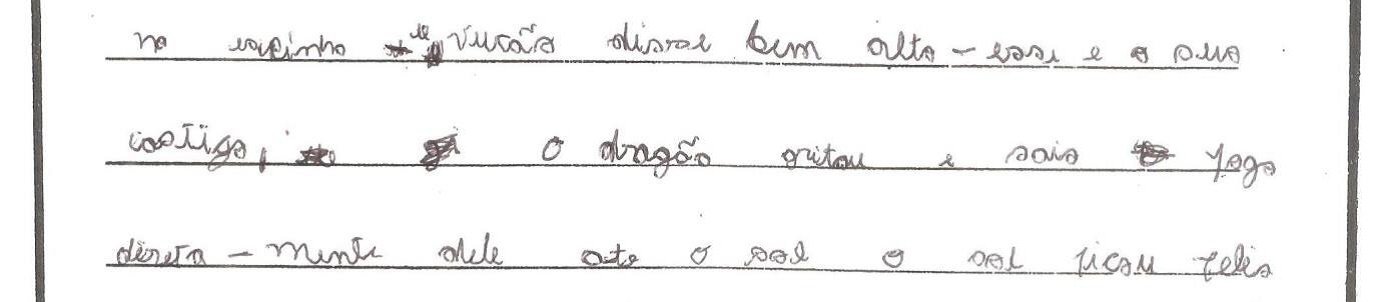 no espinho e vurcão disse bem alto - esse e o seu
castigo, o dragão gritou e saio fogo
direta - mente dele ate o sol o sol ficou felis